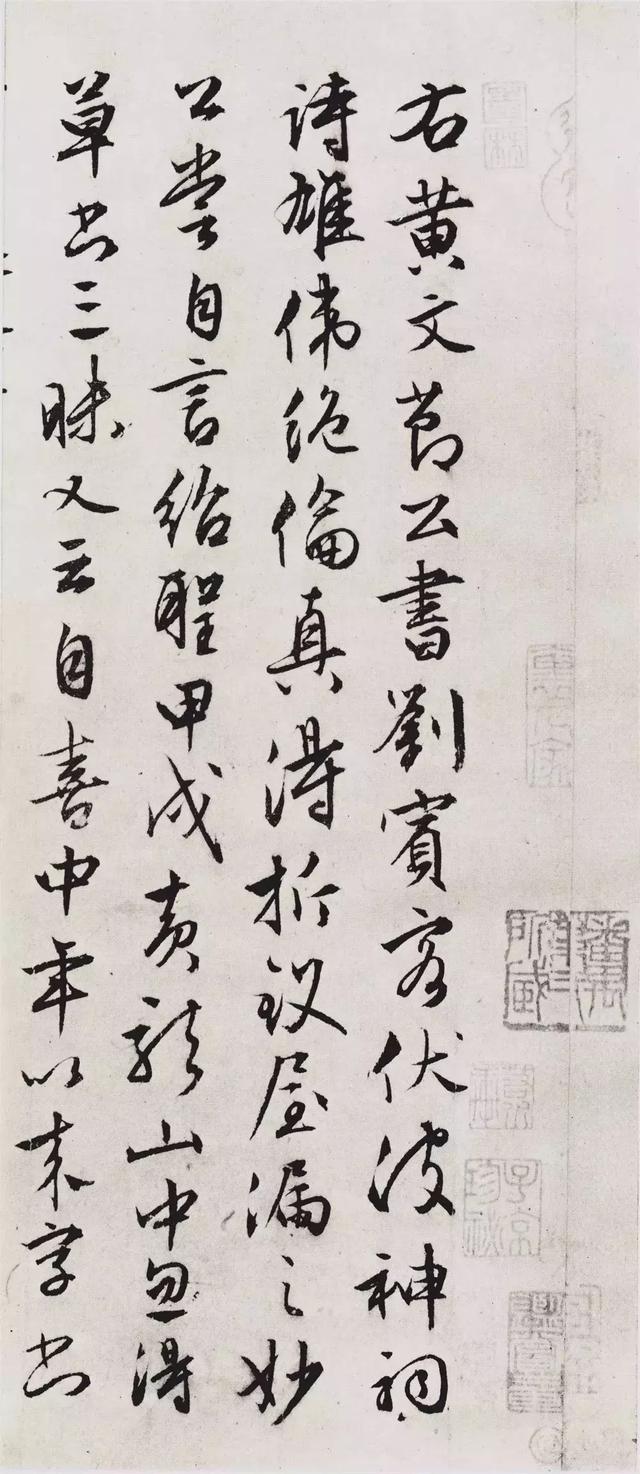 右黄文节公書劉賓客伏波神祠
詩雄偉絶倫真得折釵屋漏之妙
公嘗自言紹聖甲戌黄龍山中忽得
草书三昧又云自喜中年以来字书